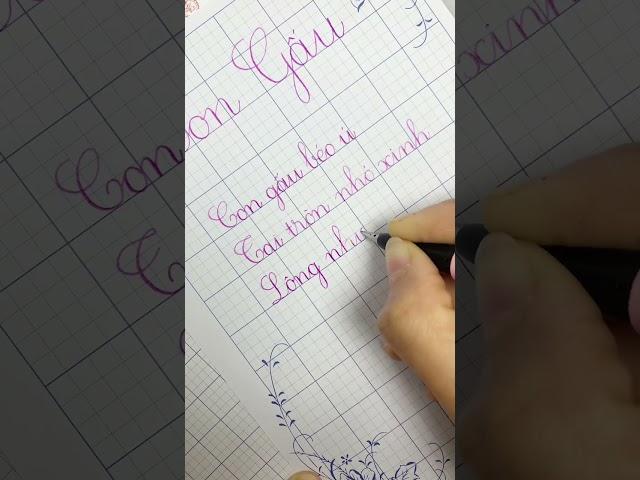 Con Gấu
Con gấu béo ú
Tai tròn nhỏ xinh
Lông như